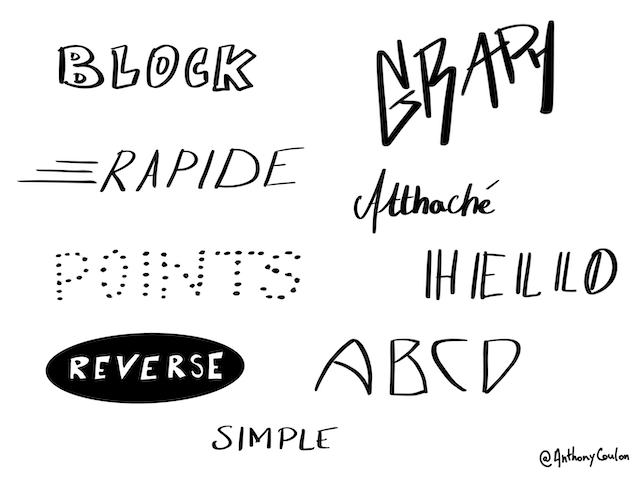 BLOCK
GRAPH
RAPIDE
Atthaché
POINTS
HELLO
REVERSE
ABCD
SIMPLE
@AnthonyCoulon